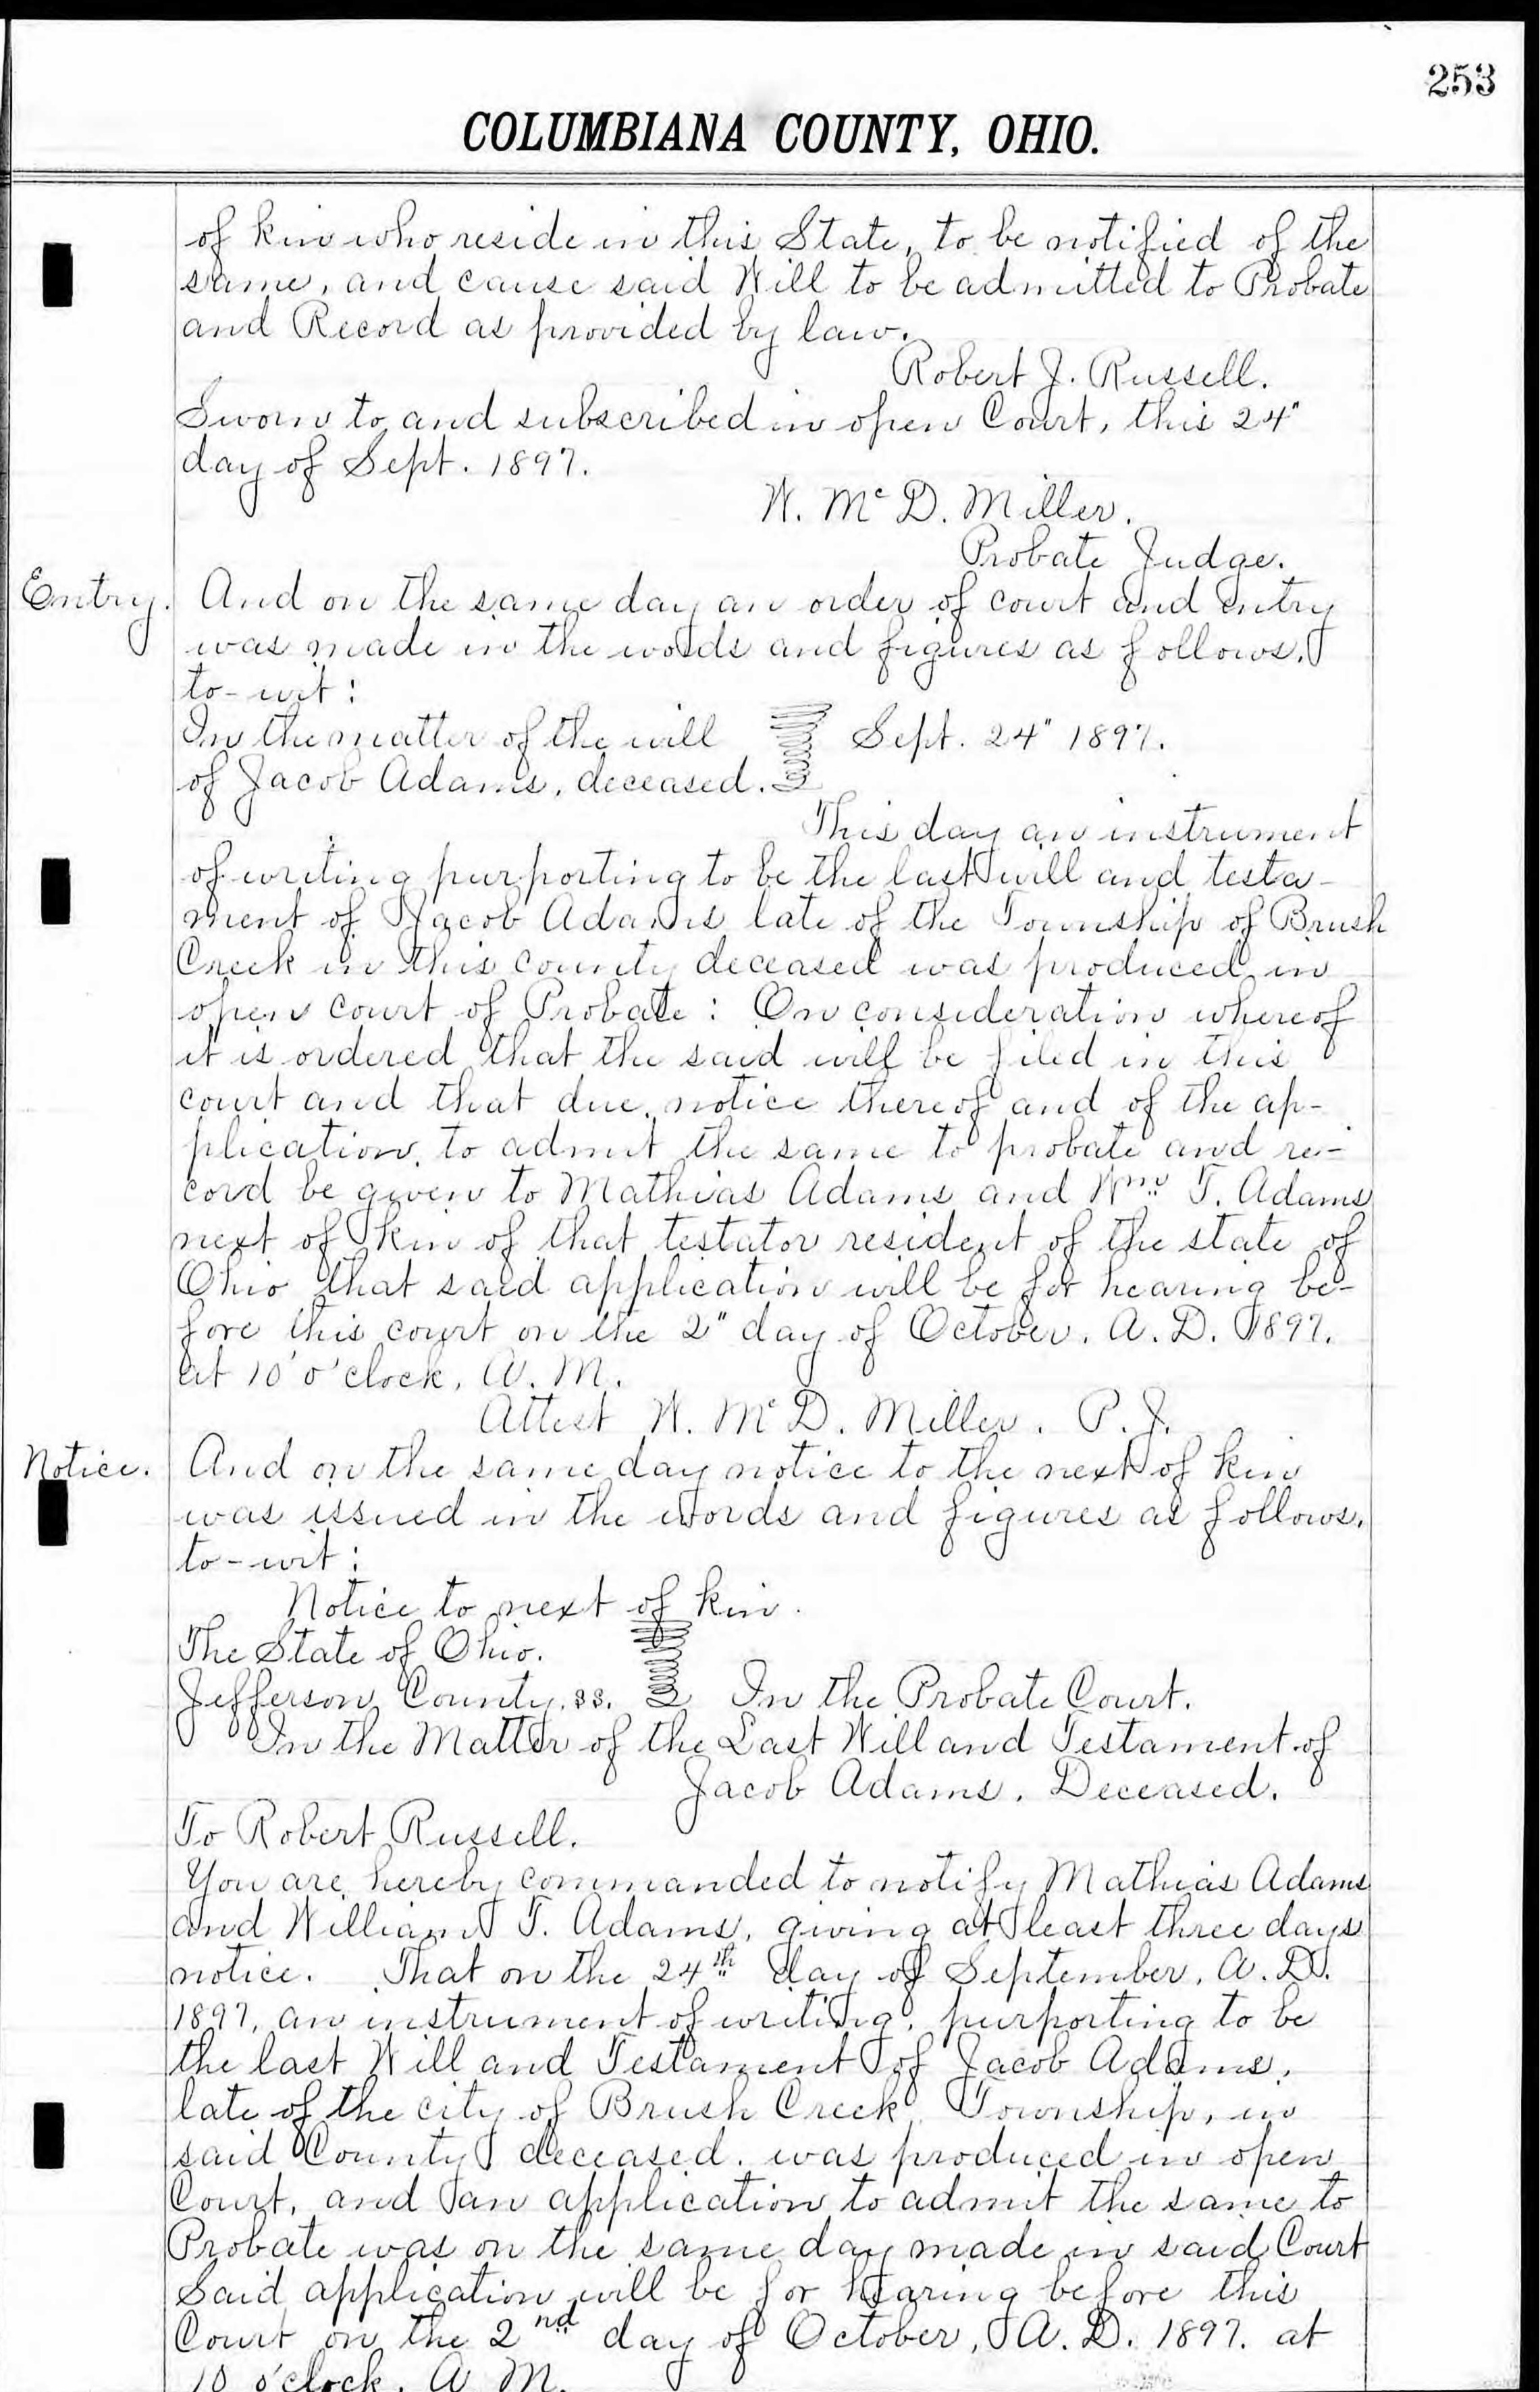 253
COLUMBIANA COUNTY, OHIO.
of kin who reside in this State, to be notified of the
same, and cause said Will to be admitted to Probate
and Record as provided by law.
Robert J. Russell.
Sworn to and subscribed in open Court, this 24"
day of Sept. 1897.
W. McD. Miller.
Probate Judge.
Entry. And on the same day an order of court and entry
was made in the words and figures as follows,
to-wit:
In the matter of the will Sept. 24" 1897.
of Jacob Adams, deceased.
This day an instrument
of writing purporting to be the last will and testa-
ment of Jacob Adams late of the Township of Brush
Creek in this county deceased was produced in
open court of Probate: On consideration whereof
it is ordered that the said will be filed in this
court and that due notice thereof and of the ap-
plication, to admit the same to probate and re-
cord be given to Mathias Adams and Wm. T. Adams
next of kin of that testator resident of the state of
Ohio that said application will be for hearing be-
fore this court on the 2" day of October. A. D. 1897.
at 10 o'clock, A. M.
Attest W. McD. Miller. P. J.
Notice. And on the same day notice to the next of kin
was issued in the words and figures as follows.
to-wit:
Notice to next of kin.
The State of Ohio.
Jefferson County. ss. In the Probate Court.
In the Matter of the Last Will and Testament of
Jacob Adams. Deceased.
To Robert Russell.
You are hereby commanded to notify Mathias Adams
and William T. Adams, giving at least three days
notice. That on the 24th day of September, A. D.
1897, an instrument of writing, purporting to be
the last Will and Testament of Jacob Adams,
late of the city of Brush Creek Township, in
said County deceased. was produced in open
Court, and an application to admit the same to
Probate was on the same day made in said Court
Said application will be for hearing before this
Court on the 2nd day of October, A. D. 1897. at
10 o'clock, A M.